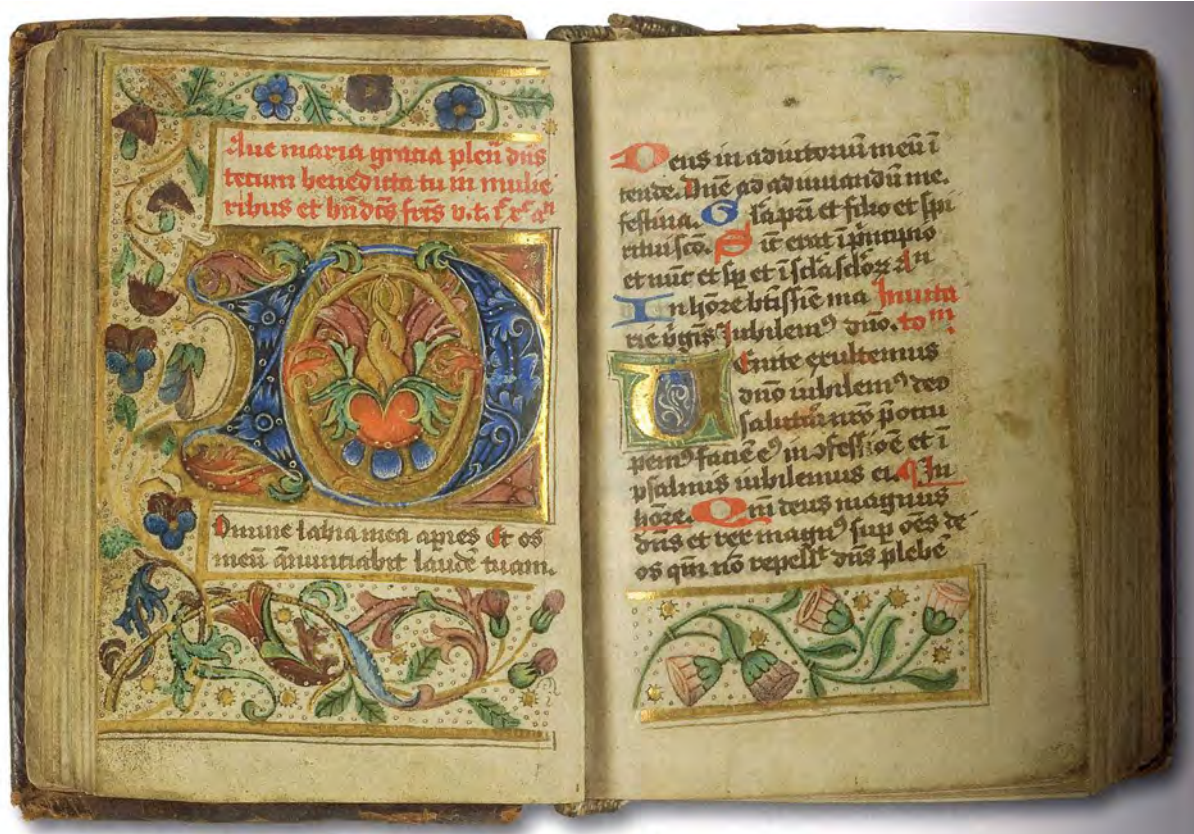 Aue maria gratia plen̄ dn̄s
tecum benedicta tu in mulie
ribus et bn̄dc̄s fr̄s v. t.
Domine labia mea apries Et os
meū ānuntiabit laudē tuam.
Deus in adiutoriū meū ī
tende. Dn̄e ad adiuuandū me.
festina. Gl̄a pr̄i et filio et spi
ritui sc̄o. Sic̄t erat ī p̄ncipio
et nūc et sp̄ et ī scl̄a scl̄oꝝ An̄
In hōre bt̄issīe ma Inuita
rie v̄gīs Iubilemꝰ dn̄o. to
Uenite exultemus
dn̄o iubilemꝰ deo
salutari nr̄o p̄occu
pemꝰ faciē eꝰ in ꝯfessioē et ī
psalmis iubilemus ei. In
hōre. Qm̄ deus magnus
dn̄s et rex magnꝰ sup oēs de
os qm̄ nō repell̄t dn̄s plebē